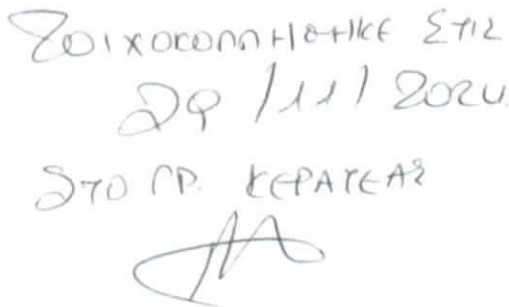 ΤΟΙΧΟΚΟΛΛΗΘΗΚΕ ΣΤΙΣ
29/11/2024
ΣΤΟ ΓΡ. ΚΕΡΑΤΕΑΣ